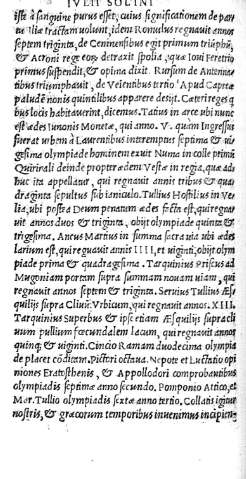 IVLII SOLINI
iste à sanguine purus esset, cuius significationem de par
tu Iliæ tractam uolunt, idem Romulus regnauit annos
septem triginta, de Ceninensibus egit primum triũphũ,
& Acroni rege eorũ detraxit spolia, quæ Ioui Feretrio
primus suspendit, & opima dixit. Rursum de Antemna-
tibus triumphauit, de Veientibus tertio Apud Capræ
paludẽ nonis quintilibus apparere desijt. Cæteri reges q̃
bus locis habitauerint, dicemus. Tatius in arce ubi nunc
est ædes Iunonis Monetæ, qui anno. V. quàm ingressus
fuerat urbem à Laurentibus interemptus septima & ui
gesima olympiade hominem exuit Numa in colle primũ
Quirinali deinde propter ædem Vestæ in regia, quæ ad
huc ita appellatur, qui regnauit annis tribus & qua-
draginta sepultus sub ianiculo. Tullius Hostilius in Ve-
lia, ubi postea Deum penatum ædes fcta est, qui regna-
uit annos duos & triginta, obijt olympiade quinta &
trigesima. Ancus Martius in summa sacra uia ubi ædes
Larium est, qui regnauit annis IIII, et uiginti, obijt olym
piade prima & quadragesima. Tarquinius Priscus ad
Mugoniam portam supra summam nouam uiam, qui
regnauit annos septem & triginta. Seruius Tullius Æs-
quilijs supra Cliuũ. Vrbicum, qui regnauit annos. XIII.
Tarquinius Superbus & ipse etiam Æsquilijs supra cli
uum pullium ad fœcundalem lacum, qui regnauit annos
quinq; & uiginti. Cincio Romam duodecima olympia
de placet cõditam. Pictori octaua. Nepote et Luctatio opi
niones Eratosthenis, & Appollodori comprobantibus
olympiadis septimæ anno secundo. Pomponio Attico, et
Mar. Tullio olympiadis sextæ anno tertio. Collatis igitur
nostris, & græcorum temporibus inuenimus incipien-